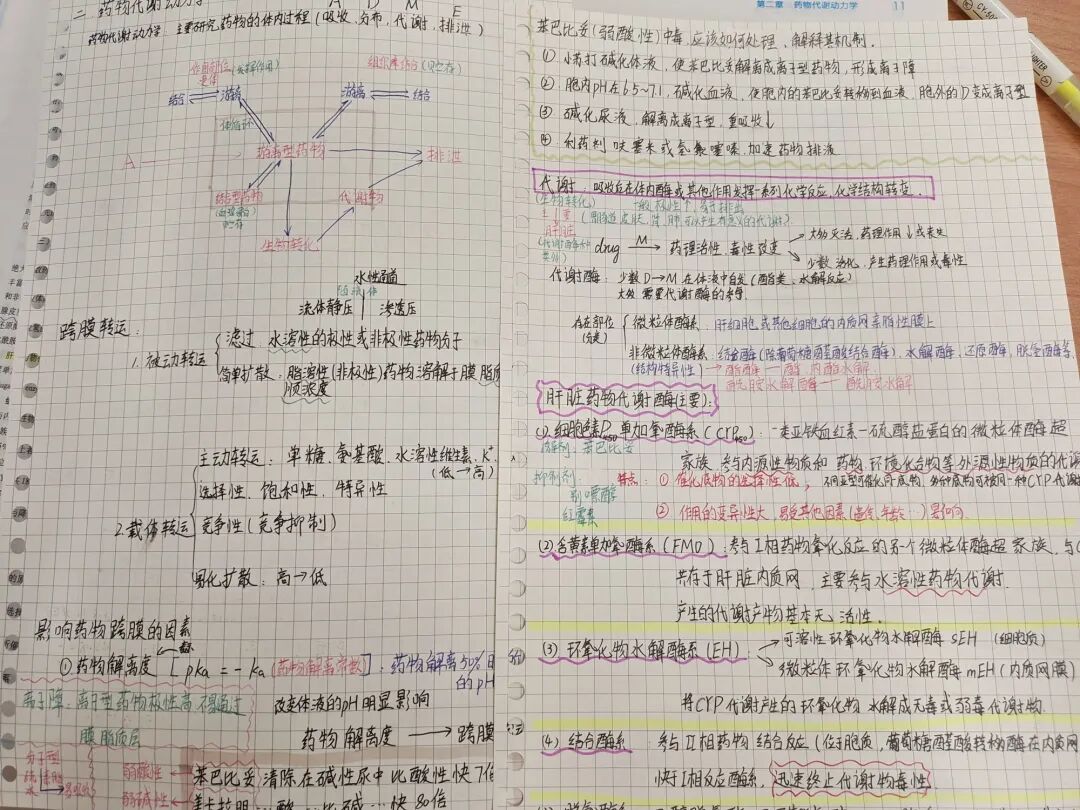 二 药物代谢动力学 A D M E
药物代谢动力学:主要研究药物的体内过程(吸收、分布、代谢、排泄)
作用部位 受体 (发挥作用)
组织库结合 (贮存)
结合 游离 游离 结合
体循环
A 游离型药物 排泄
结合型药物 代谢物
(血浆蛋白)
贮存
生物转化
水性通道
流体静压 渗透压
跨膜转运:
1. 被动转运
滤过:水溶性的极性或非极性药物分子
简单扩散:脂溶性(非极性)药物溶解于膜脂质
顺浓度
2. 载体转运
主动转运:单糖、氨基酸、水溶性维生素、K+
(低→高)
选择性、饱和性、特异性
竞争性(竞争抑制)
易化扩散:高→低
影响药物跨膜的因素
①药物解离度 [pka = - ka (药物解离常数)]:药物解离50%
的pH
离子障:离子型药物极性高 不易通过
膜脂质层
改变体液的pH明显影响
药物解离度 → 跨膜
分子型
弱酸性
弱碱性
苯巴比妥:清除在碱性尿中比酸性快7倍
第二章 药物代谢动力学 11
苯巴比妥(弱酸性)中毒,应该如何处理,解释其机制.
① 小苏打碱化体液,使苯巴比妥解离成离子型药物,形成离子障
② 胞内pH在6.5~7.1,碱化血液,使胞内的苯巴比妥转移到血液,胞外的D变成离子型
③ 碱化尿液,解离成离子型,重吸收↓
④ 利药剂 呋塞米或氢氯噻嗪,加速药物排泄
代谢:吸收后在体内酶或其他作用发挥一系列化学反应,化学结构转变.
(生物转化)
一般极性↑,易于排出
主要 (胃肠道、皮肤、肾、肺,可以产生有意义的代谢).
肝脏
drug M→ 药理活性、毒性改变
大多灭活,药理作用↓或丧失
少数活化,产生药理作用或毒性
代谢酶:少数D→M 在体液中自发(酯自类、水解反应)
大多 需要代谢酶的参与
存在部位
(分类)
微粒体酶系:肝细胞或其他细胞的内质网亲脂性膜上
非微粒体酶系:结合酶(除葡萄糖醛酸结合酶)、水解酶、还原酶、脱氢酶等
(结构特异性) → 酯酶——酯、内酯水解.
酰胺水解酶——酰胺水解
肝脏药物代谢酶(主要):
(1) 细胞色素P450单加氧酶系(CYP450):一类亚铁血红素—硫醇盐蛋白的微粒体酶超
诱导剂:苯巴比妥
家族,参与内源性物质和药物、环境化合物等外源性物质的代谢
抑制剂:
别嘌醇
红霉素
特点:① 催化底物的选择性低; 不同亚型可催化同一底物,多种底物可被同一种CYP代谢
② 作用的变异性大,易受其他因素(遗传、年龄…)影响.
(2) 含黄素单加氧酶系(FMO):参与I相药物氧化反应的另个微粒体酶超家族,与C
共存于肝脏内质网,主要参与水溶性药物代谢.
产生的代谢产物基本无活性.
(3) 环氧化物水解酶系(EH):
可溶性环氧化物水解酶 sEH (细胞质)
微粒体环氧化物水解酶 mEH(内质网膜)
将CYP代谢产生的环氧化物水解成无毒或弱毒代谢物.
(4) 结合酶系:参与II相药物结合反应(位于胞质,葡萄糖醛酸转移酶在内质网
快于I相反应酶系,迅速终止代谢物毒性.